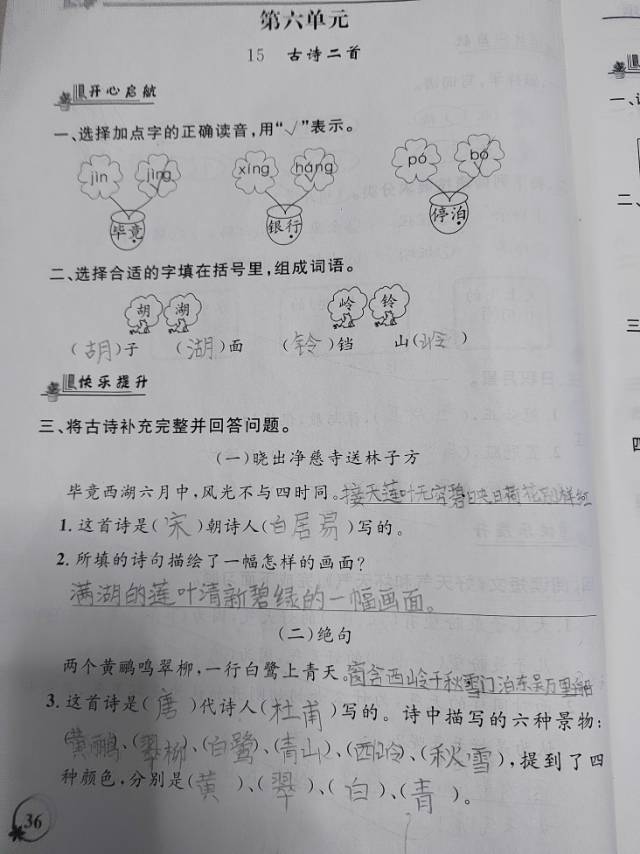 第六单元
15 古诗二首
开心启航
一、选择加点字的正确读音,用“√”表示。
jìn jìng xíng háng pó bó
毕竟 银行 停泊
二、选择合适的字填在括号里,组成词语。
胡 湖 岭 铃
(胡)子 (湖)面 (铃)铛 山(岭)
快乐提升
三、将古诗补充完整并回答问题。
(一)晓出净慈寺送林子方
毕竟西湖六月中,风光不与四时同。接天莲叶无穷碧映日荷花别样红
1.这首诗是(宋)朝诗人(白居易)写的。
2.所填的诗句描绘了一幅怎样的画面?
满湖的莲叶清新碧绿的一幅画面。
(二)绝句
两个黄鹂鸣翠柳,一行白鹭上青天。窗含西岭千秋雪门泊东吴万里船
3.这首诗是(唐)代诗人(杜甫)写的。诗中描写的六种景物:
(黄鹂)、(翠柳)、(白鹭)、(青山)、(西岭)、(秋雪),提到了四
种颜色,分别是(黄)、(翠)、(白)、(青)。
36